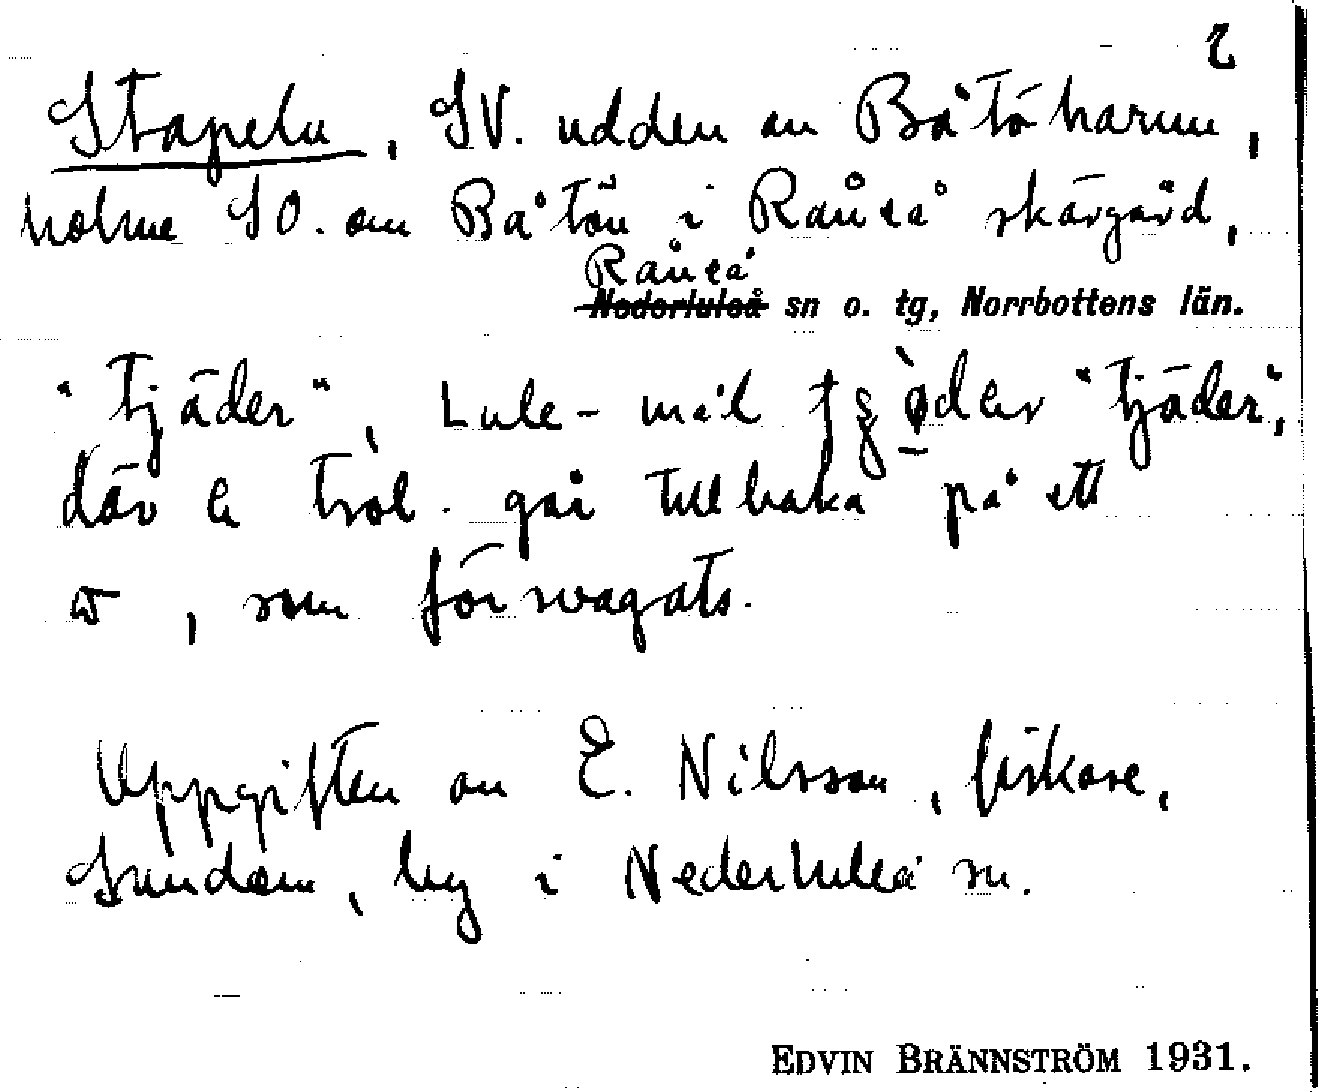 2
Stapeln, SV. udden av Båtöharun,
holme SO. om Båtön i Råneå skärgård,
Råneå
Nederluleå sn o. tg, Norrbottens län.
"tjäder", Lule-mål "tjäder",
där e trol. går tillbaka på ett
, som försvagats.
Uppgiften av E. Nilsson, fiskare,
Sundom, by i Nederluleå sn.
EDVIN BRÄNNSTRÖM 1931.